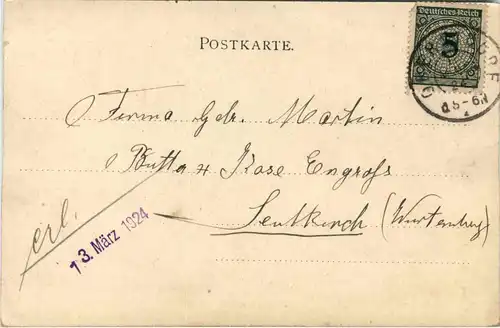 POSTKARTE.
Deutsches Reich
5
Firma Gebr. Martin
Butter u Käse Engros
Leutkirch (Württemberg)
erl.
13. März 1924